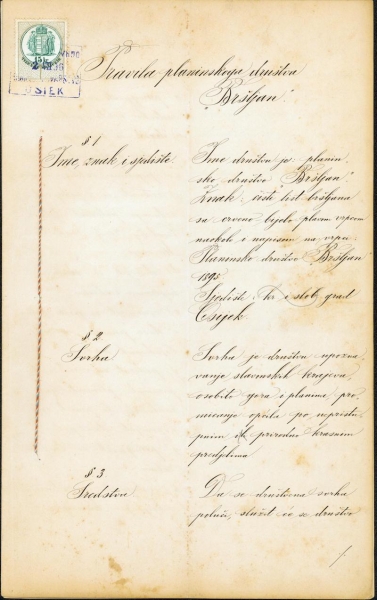 OSIEK
Pravila planinskoga društva
"Bršljan".
§ 1
Ime, znak i sjedište
Ime društvu je planin
sko društvo "Bršljan"
Znak: list bršljana
sa crveno bijelo plavom vrpcom
naokolo i napisom na vrpci
Planinsko društvo Bršljan
1895
Sjedište: kr. i slob. grad
Osijek.
§ 2
Svrha
Svrha je društvu upozna
vanje slavonskih krajeva,
osobito gora i planina, pro
micanje općila po nepristu
pnim ili prirodno krasnim
predjelima
§ 3
Sredstva
Da se društvena svrha
poluči, služit će se društvo
1